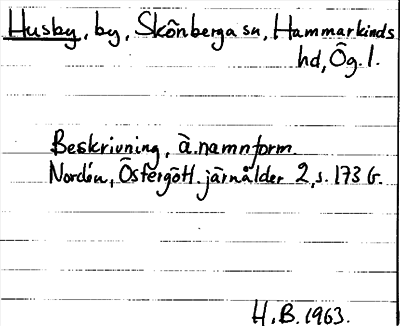 Husby, by, Skönberga sn, Hammarkinds
hd, Ög. l.
Beskrivning, ä. namnform.
Nordén, Östergötl. järnålder 2, s. 173 G.
H. B. 1963.